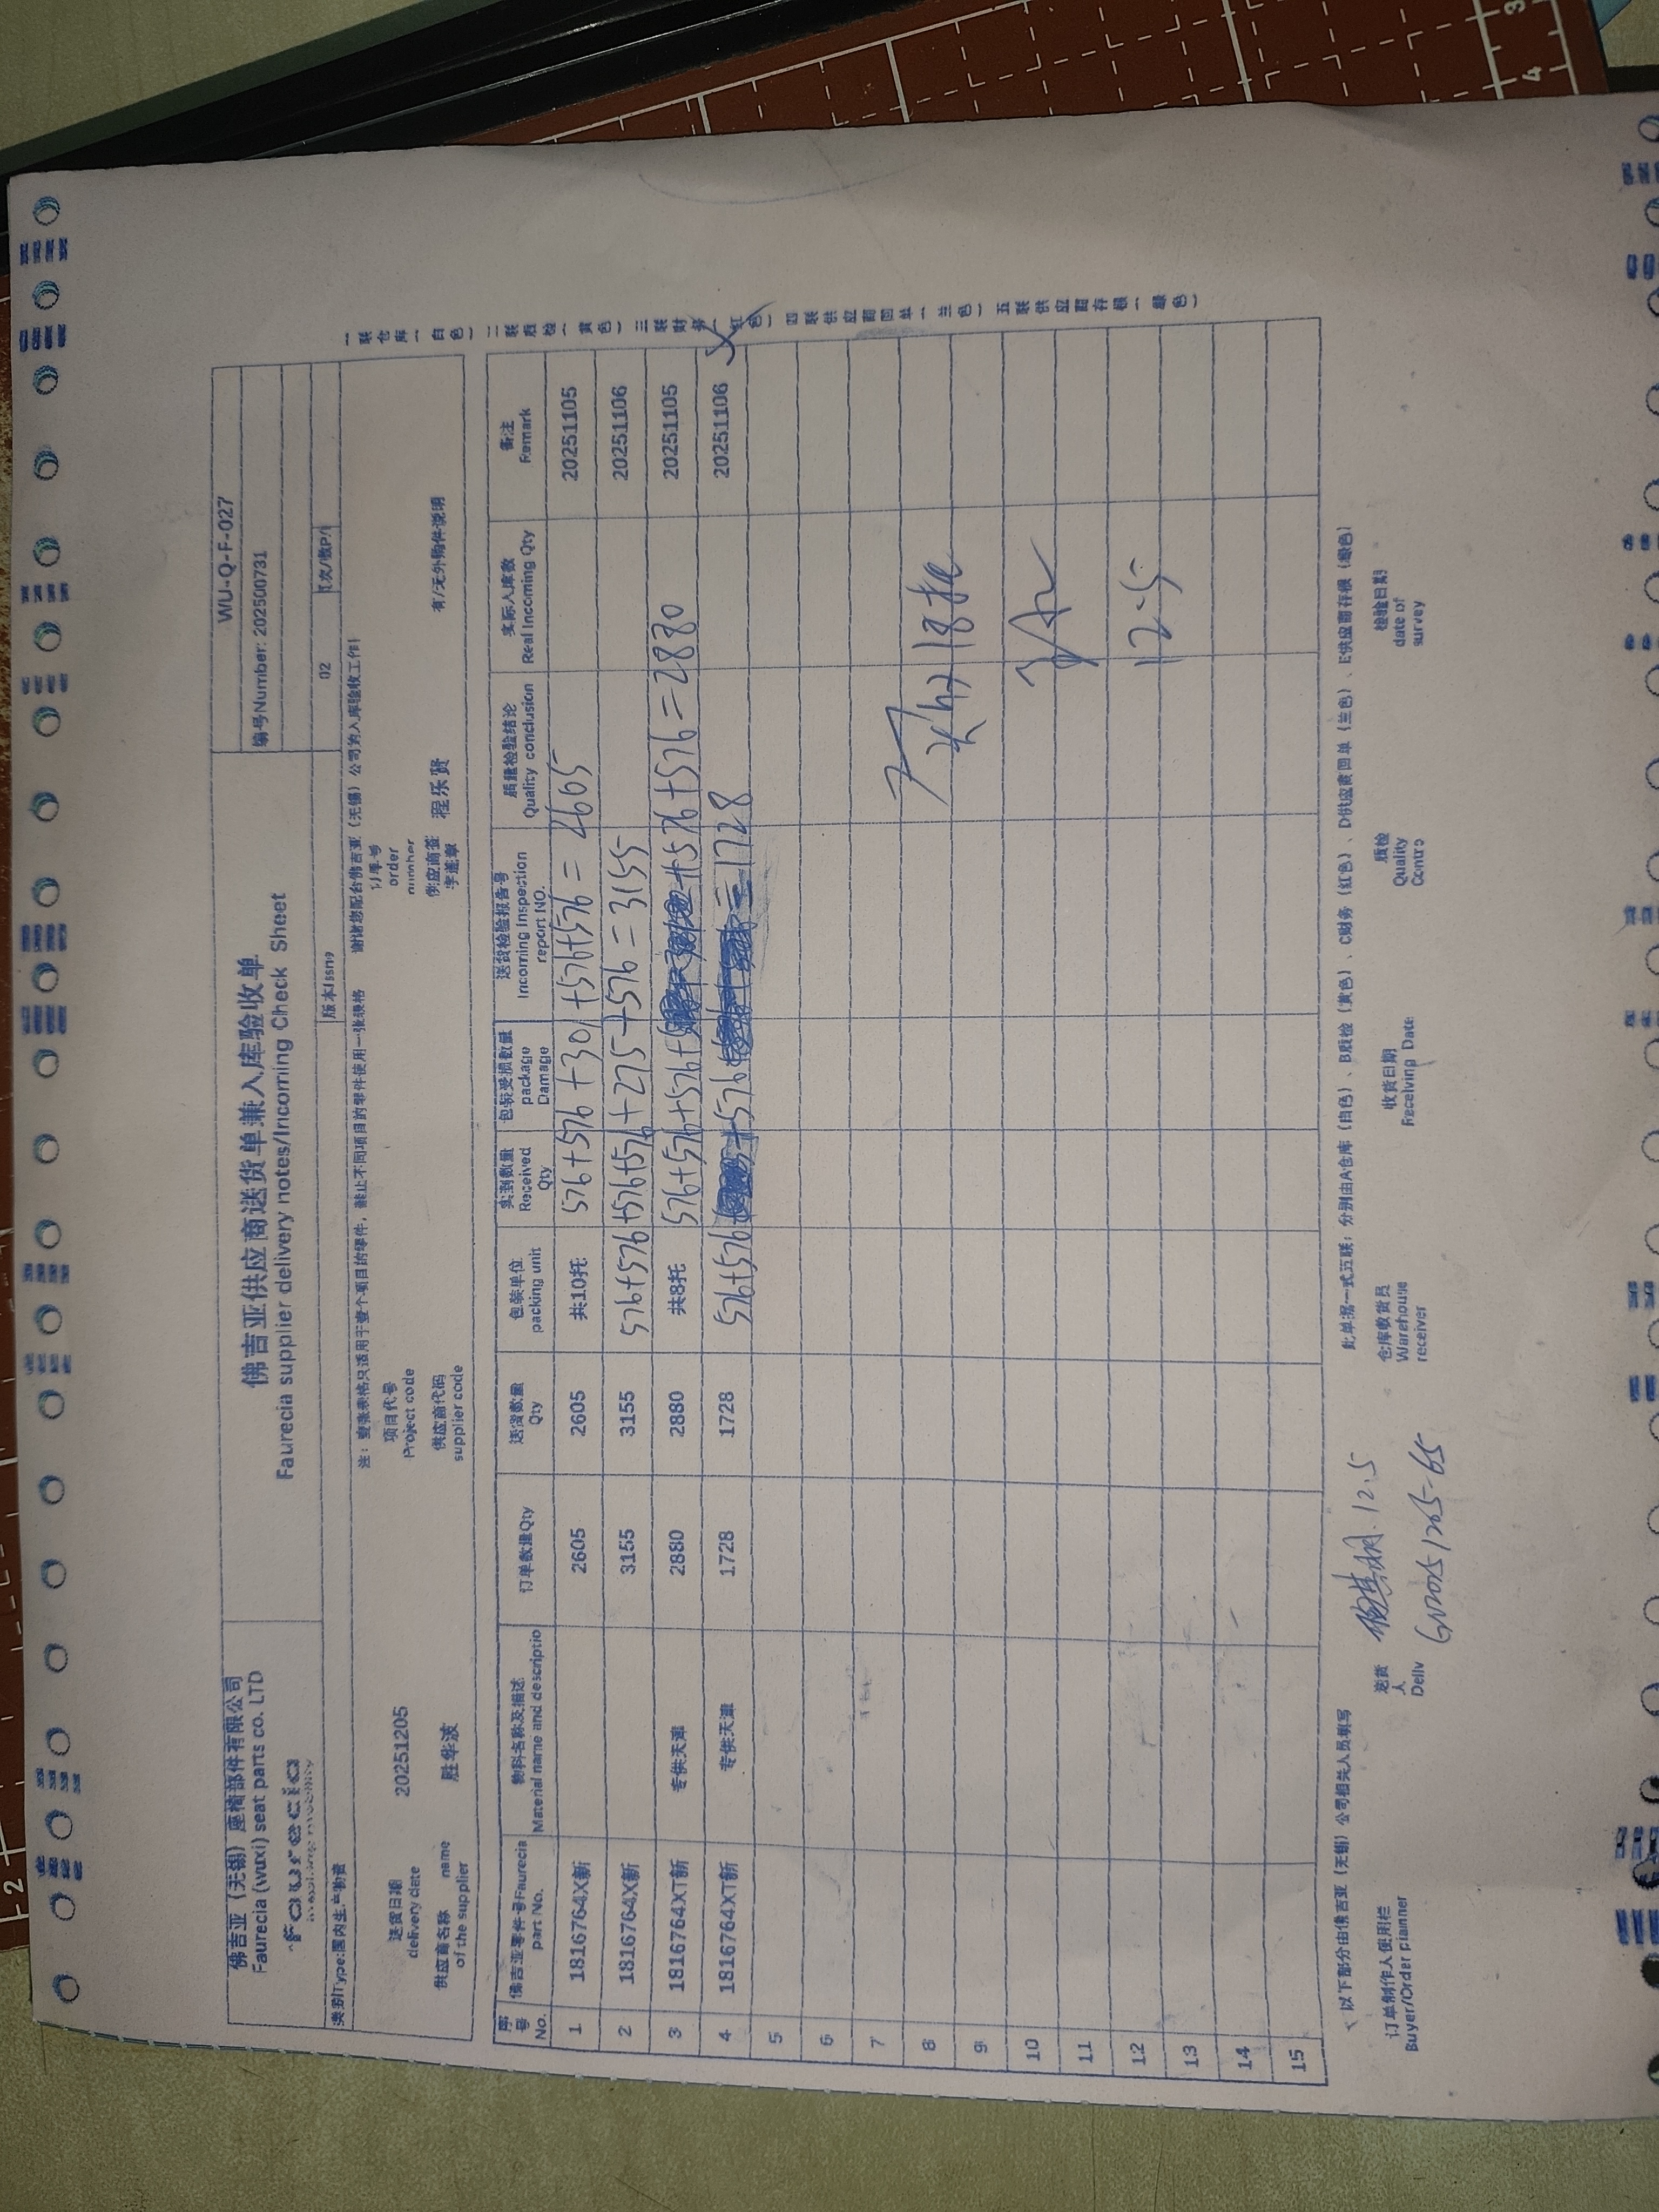 佛吉亚（无锡）座椅部件有限公司
Faurecia (wuxi) seat parts co. LTD
faurecia
佛吉亚供应商送货单兼入库验收单
Faurecia supplier delivery notes/Incoming Check Sheet
WU-Q-F-027
编号Number: 202500731
类别Type:国内生产物资
版本Issng
02
页次/数P/
注：壹张表格只适用于壹个项目的零件，禁止不同项目的零件使用一张表格 谢谢您配合佛吉亚（无锡）公司的入库验收工作!
送货日期 delivery date 20251205
项目代号 Project code
订单号 order number
供应商名称 name of the supplier 胜华波
供应商代码 supplier code
供应商签字盖章 程乐贤
有/无外购件说明
序号 No. 佛吉亚零件号Faurecia part No. 物料名称及描述 Material name and descriptio 订单数量Qty 送货数量 Qty 包装单位 packing unit 实到数量 Received Qty 包装受损数量 package Damage 送货检验报告号 Incoming Inspection report NO. 质量检验结论 Quality conclusion 实际入库数 Real Incoming Qty 备注 Remark
1 1816764X新 2605 2605 共10托 576+576+301+576+576=2605 20251105
2 1816764X新 3155 3155 576+576+576+576+275+576=3155 20251106
3 1816764XT新 专供天津 2880 2880 共8托 576+576+576+576+576=2880 20251105
4 1816764XT新 专供天津 1728 1728 576+576+576=1728 20251106
5
6
7
8 共计18托
9
10
11
12 12.5
13
14
15
一联仓库（白色）二联质检（黄色）三联财务（红色）四联供应商回单（兰色）五联供应商存根（绿色）
以下部分由佛吉亚（无锡）公司相关人员填写
此单据一式五联：分别由A仓库（白色）、B质检（黄色）、C财务（红色）、D供应商回单（兰色）、E供应商存根（绿色）
订单制作人使用栏 Buyer/Order planner
送货人 Deliv 12.5
GN20251205-65
仓库收货员 Warehouse receiver
收货日期 Receiving Date
质检 Quality Contro
检验日期 date of survey